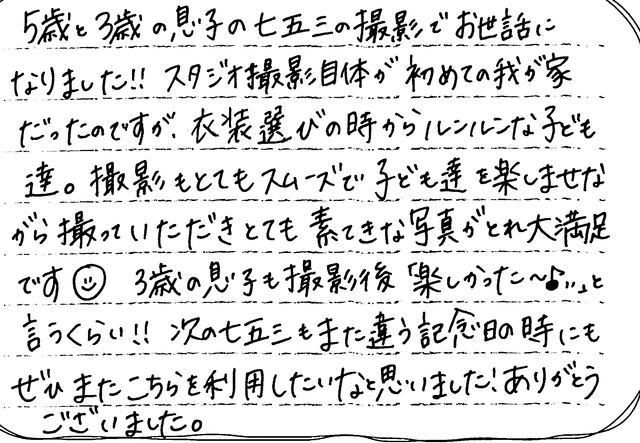 5歳と3歳の息子の七五三の撮影でお世話に
なりました!! スタジオ撮影自体が初めての我が家
だったのですが、衣装選びの時からルンルンな子ども
達。撮影もとてもスムーズで子ども達を楽しませな
がら撮っていただきとても素てきな写真がとれ大満足
です☺ 3歳の息子も撮影後「楽しかった〜♪‥」と
言うくらい!! 次の七五三もまた違う記念日の時にも
ぜひまたこちらを利用したいなと思いました!ありがとう
ございました。